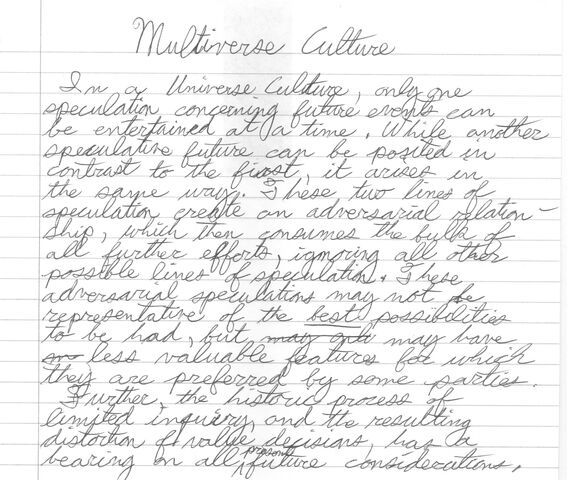 Multiverse Culture
In a Universe Culture, only one
speculation concerning future events can
be entertained at a time. While another
speculative future can be posited in
contrast to the first, it arises in
the same way. These two lines of
speculation create an adversarial relation-
ship, which then consumes the bulk of
all further efforts, ignoring all other
possible lines of speculation. These
adversarial speculations may not be
representative of the best possibilities
to be had, but may only may have
less valuable features for which
they are preferred by some parties.
Further, the historic process of
limited inquiry, and the resulting
distortion of value decisions, has a
bearing on all present future considerations.